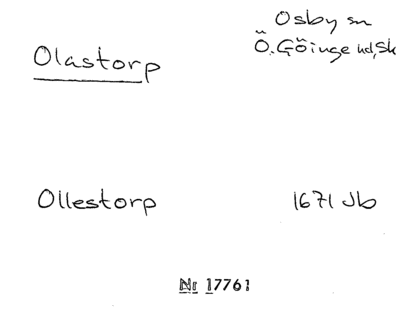 Osby sn
Olastorp
Ö. Göinge hd, Sk
Ollestorp
1671 Jb
Nr 17761